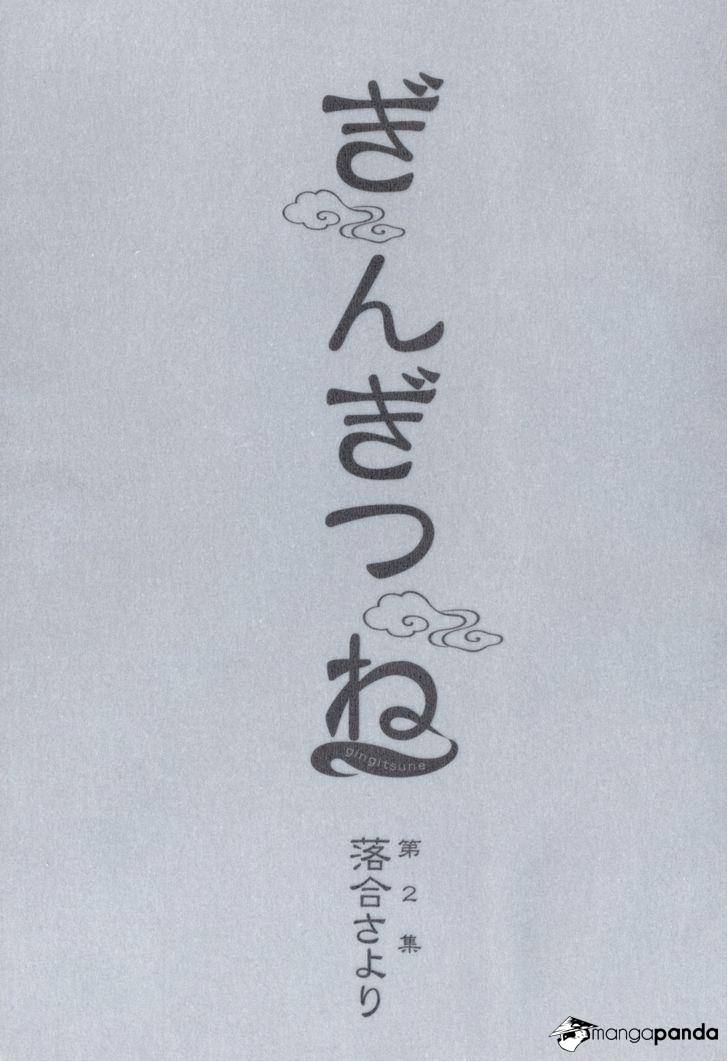 ぎんぎつね
gingitsune
第2集
落合さより
mangapanda